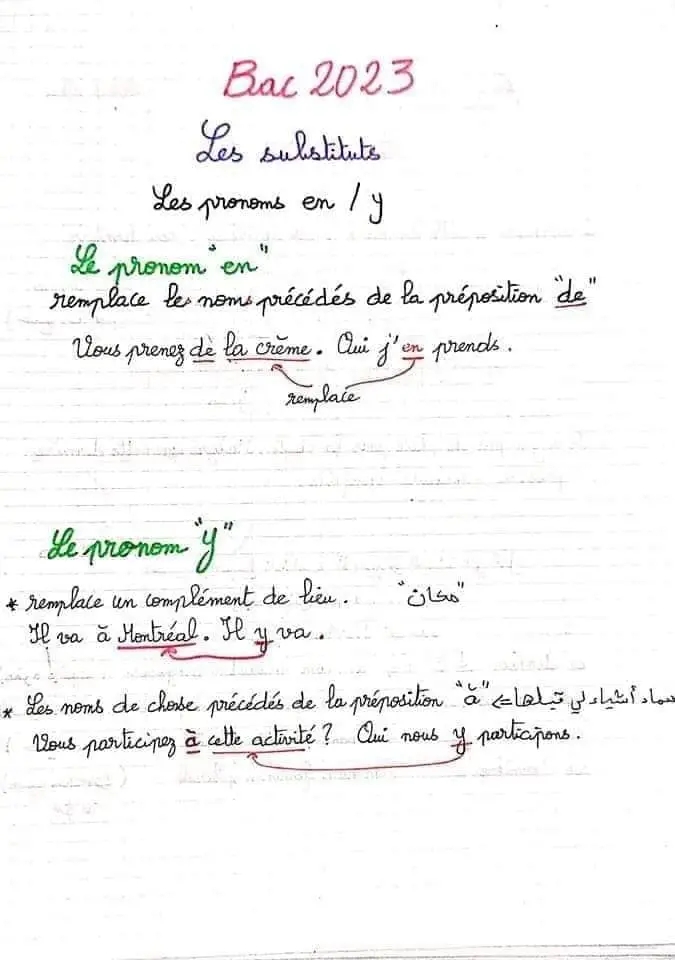 Bac 2023
Les substituts
Les pronoms en / y
Le pronom "en"
remplace les noms précédés de la préposition "de"
Vous prenez de la crème. Oui j'en prends.
remplace
Le pronom "y"
* remplace un complément de lieu. "مكان"
Il va à Montréal. Il y va.
* Les noms de chose précédés de la préposition "à" <= سماء أشياء لي قبلها
Vous participez à cette activité ? Oui nous y participons.